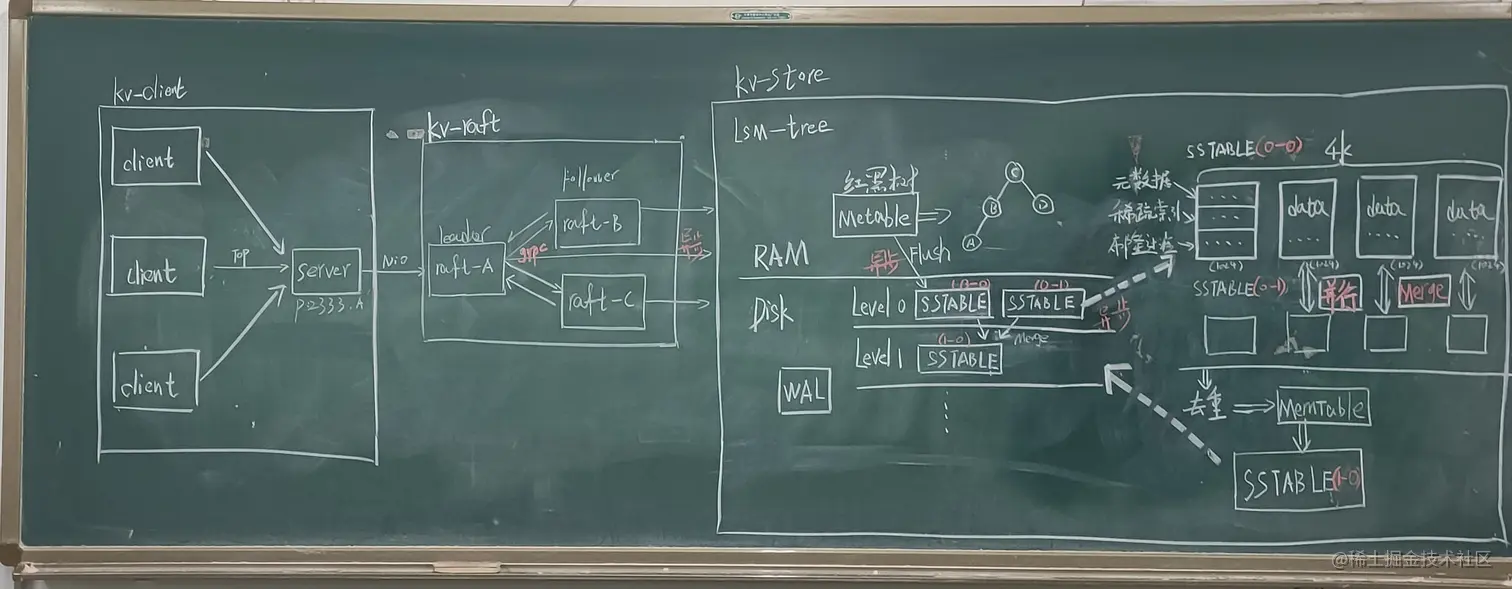 kv-client
client
client
client
TCP
server
P:2333..A
NiO
kv-raft
Follower
leader
raft-A
raft-B
raft-C
grpc
异步
kv-store
LSM-tree
红黑树
Metable
C
B
D
A
RAM
异步
Flush
Disk
Level 0
SSTABLE
(0-0)
SSTABLE
(0-1)
异步
Merge
Level 1
(1-0)
SSTABLE
WAL
SSTABLE(0-0)
4k
元数据
稀疏索引
布隆过滤
data
data
data
(1024)
(1024)
(1024)
(1024)
SSTABLE(0-1)
并行
Merge
去重
MemTable
SSTABLE(1-0)
@稀土掘金技术社区